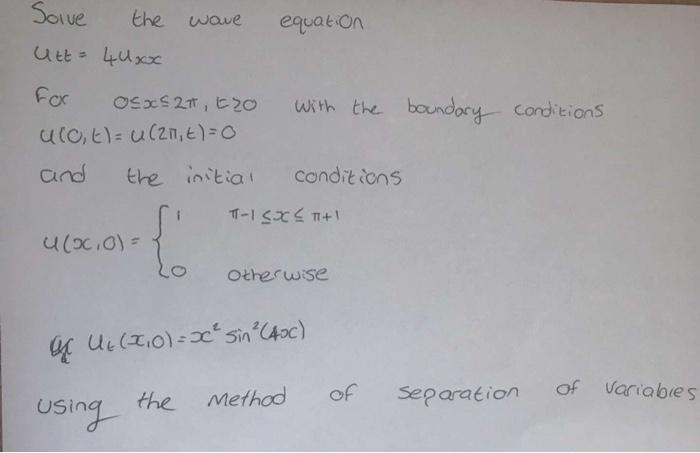 Solve the wave equation
utt = 4uxx
For 0≤x≤2π, t≥0 with the boundary conditions
u(0,t)=u(2π,t)=0
and the initial conditions
u(x,0)= { 1 π-1≤x≤π+1
0 otherwise
ut(x,0)=x² sin²(4x)
using the method of separation of variables